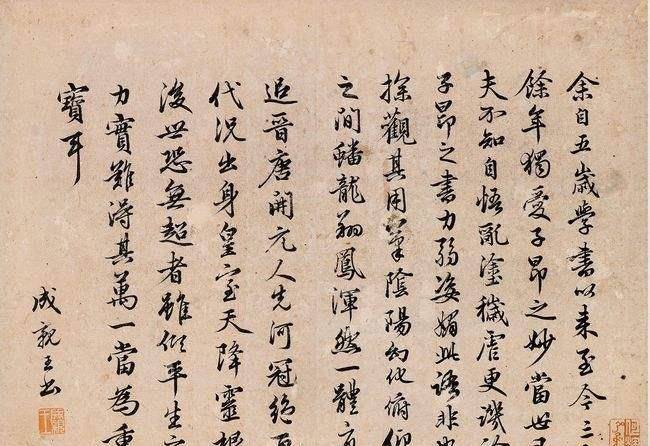 余自五歲學書以來至今三
餘年獨愛子昂之妙當世
夫不知自悟亂塗穢虐更譏
子昂之書力弱姿媚此語非
探觀其用筆陰陽幻化俯仰
之間蟠龍翔鳳渾然一體
追晉唐開元人先河冠絕
代況出身皇室天降靈
後世恐無超者雖傾平生
力實難得其萬一當為重
寶耳
成親王書